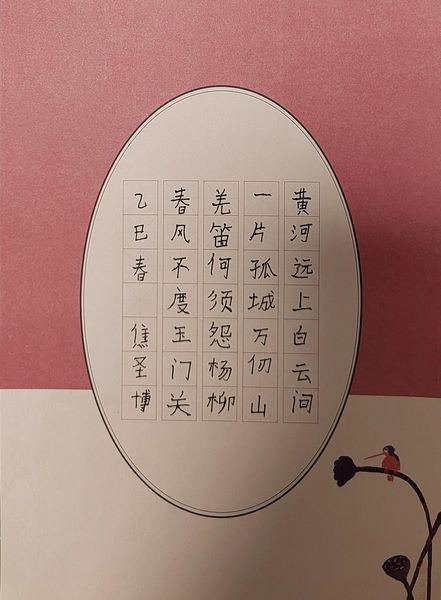 黄河远上白云间
一片孤城万仞山
羌笛何须怨杨柳
春风不度玉门关
乙巳春 焦圣博